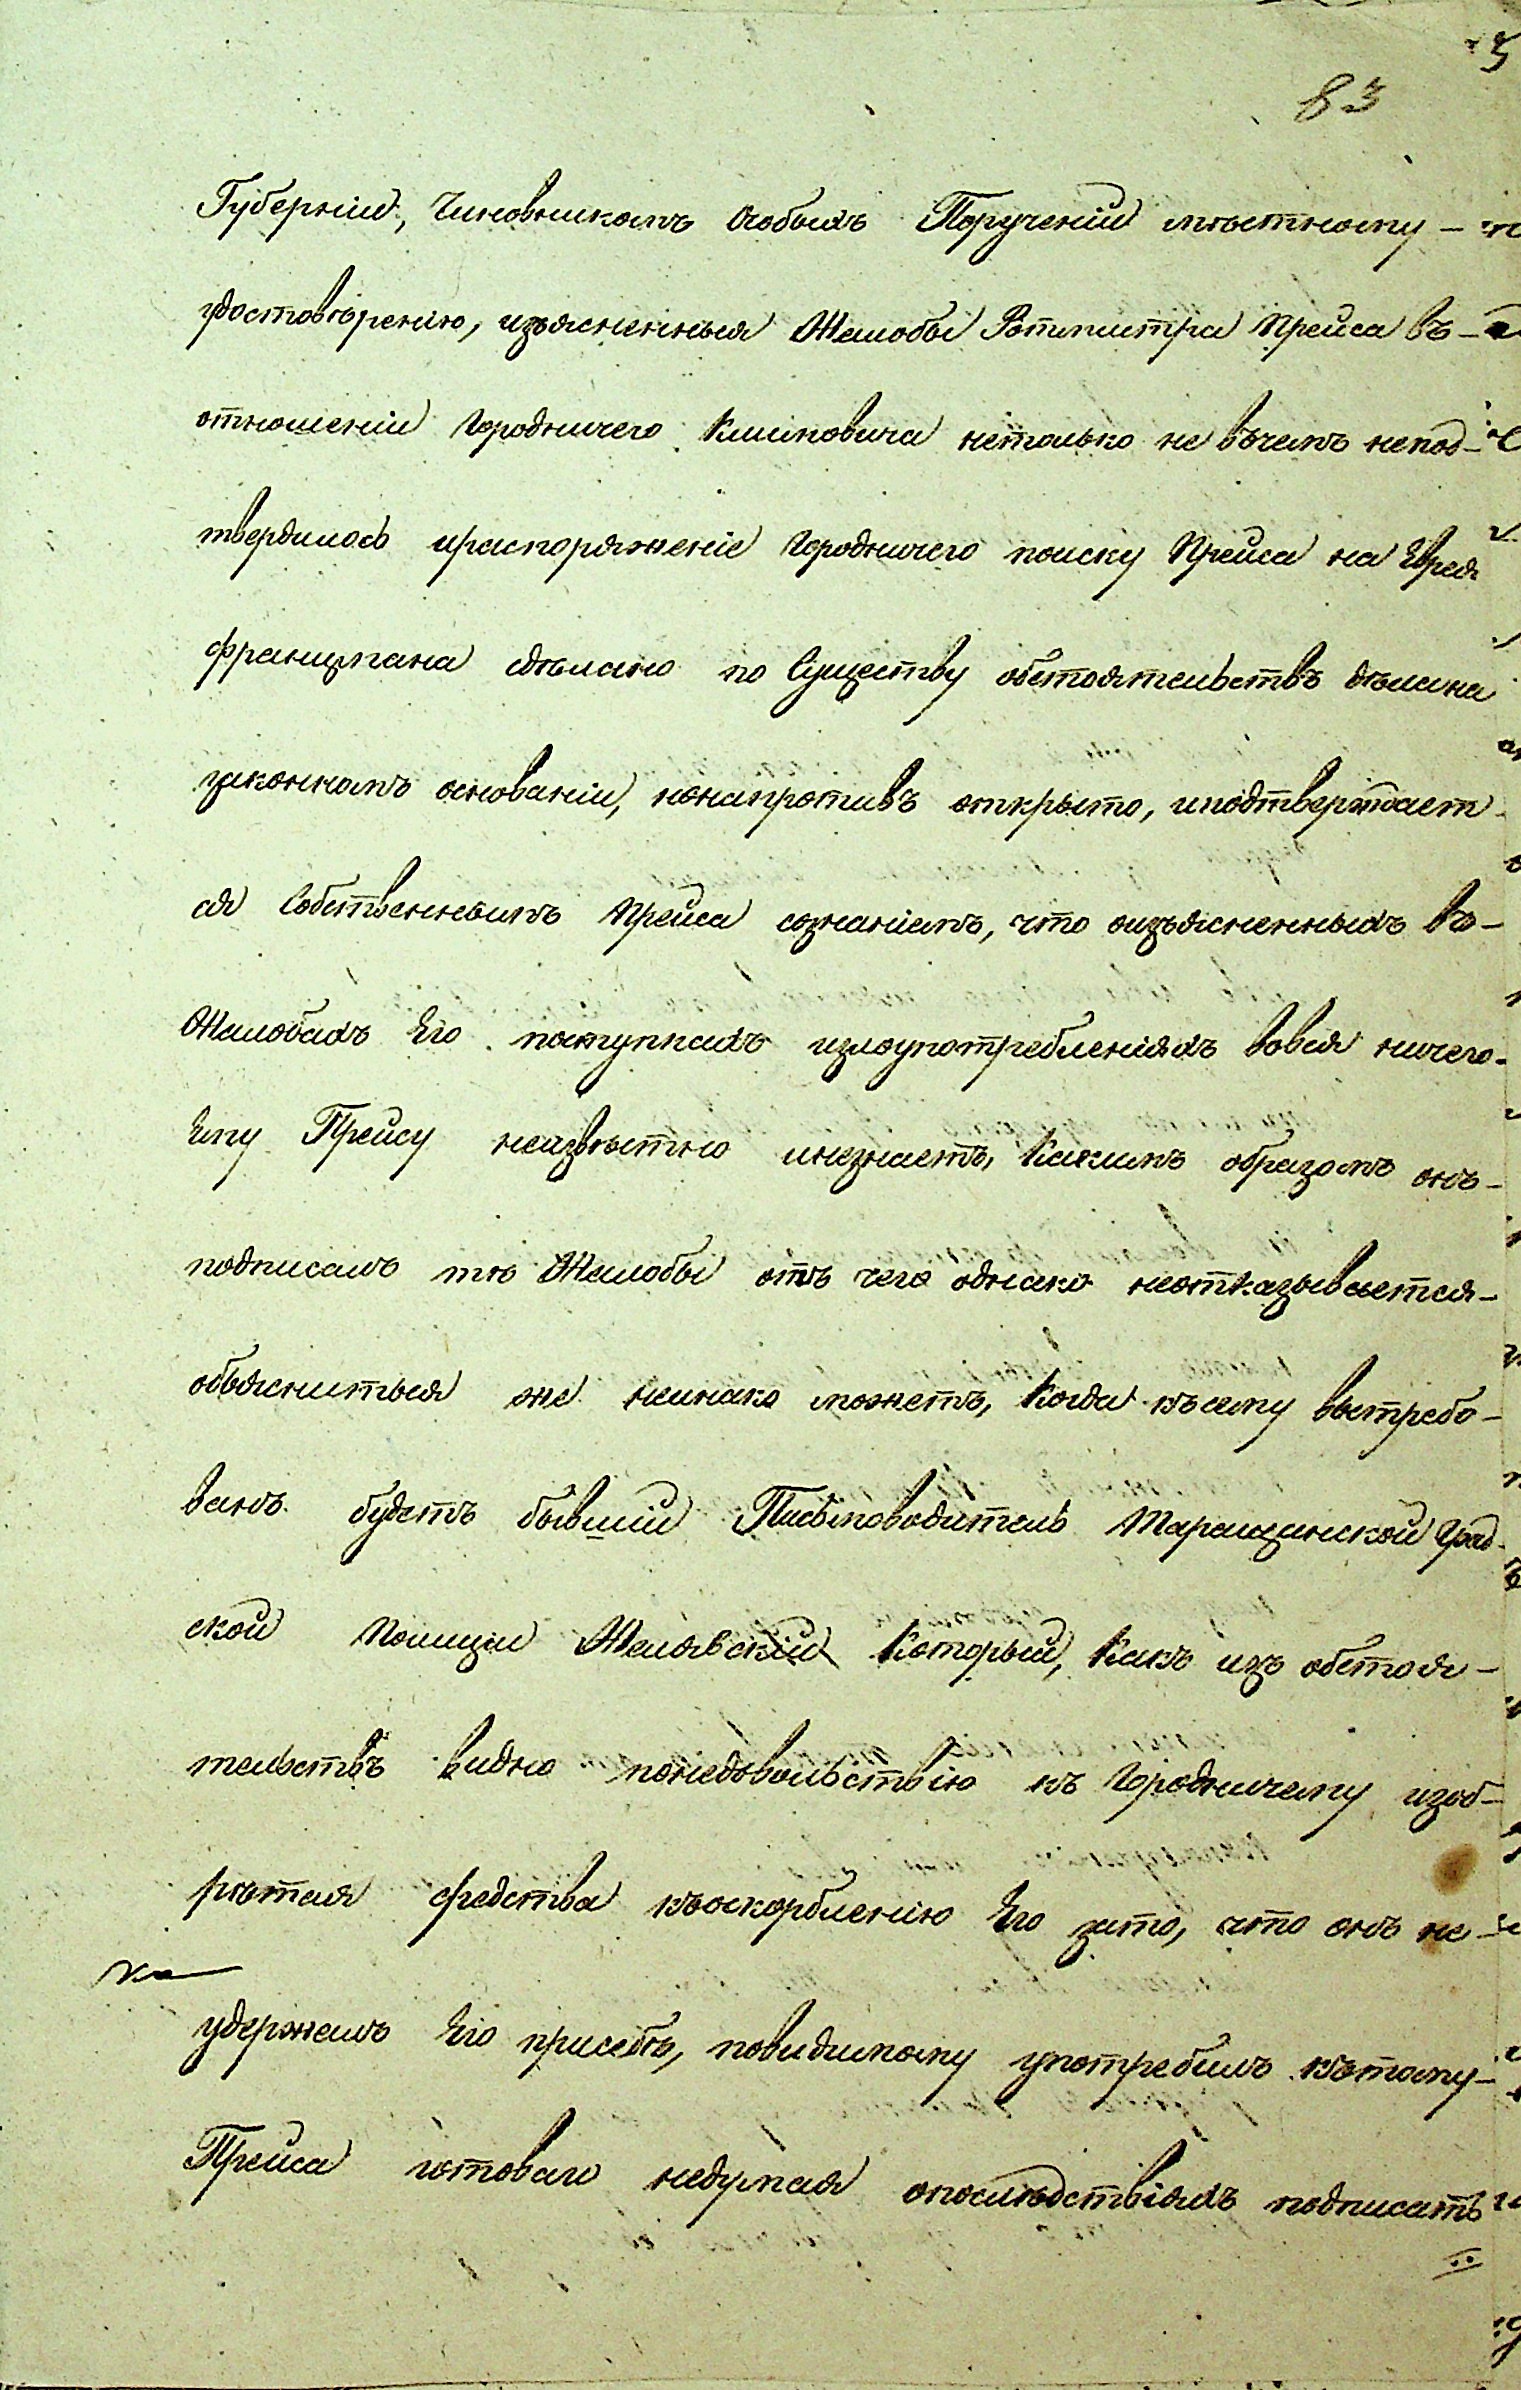 83
Губерніи, Чиновникомъ Особыхъ Порученій мѣстному –
удостовѣренію, изъясненныя Жалобы Ротмистра Прейса въ –
отношеніи Городничего Климовича нетолько не въчемъ непод–
твердилось ираспоряженіе Городничего поиску Прейса на Еврея
Францмана сдѣлано по Существу обстоятельствъ дѣлана
законномъ основаніи, нонапротивъ открыто, иподтверждает–
ся Собственнымъ Прейса сознаніемъ, что оизъясненныхъ въ –
Жалобахъ Его поступкахъ излоупотребленіяхъ вовся ничего –
Ему Прейсу неизвѣстно инезнаетъ, Какимъ образомъ онъ –
подписалъ тѣ Жалобы отъ чего однако неотказывается –
объясниться же неинако можетъ, Когда късему вытребо–
ванъ будетъ бывшій Письмоводитель Таращанской Град–
ской Полиции Желявскій Который, Какъ изъ обстоя–
тельствъ видно понедовольствію къ Городничему изоб–
рѣтая средства къоскорбленію Его зато, что онъ не –
удержалъ Его присебѣ, повидимому употребилъ кътому –
Прейса готоваго недумая опослѣдствіяхъ подписать